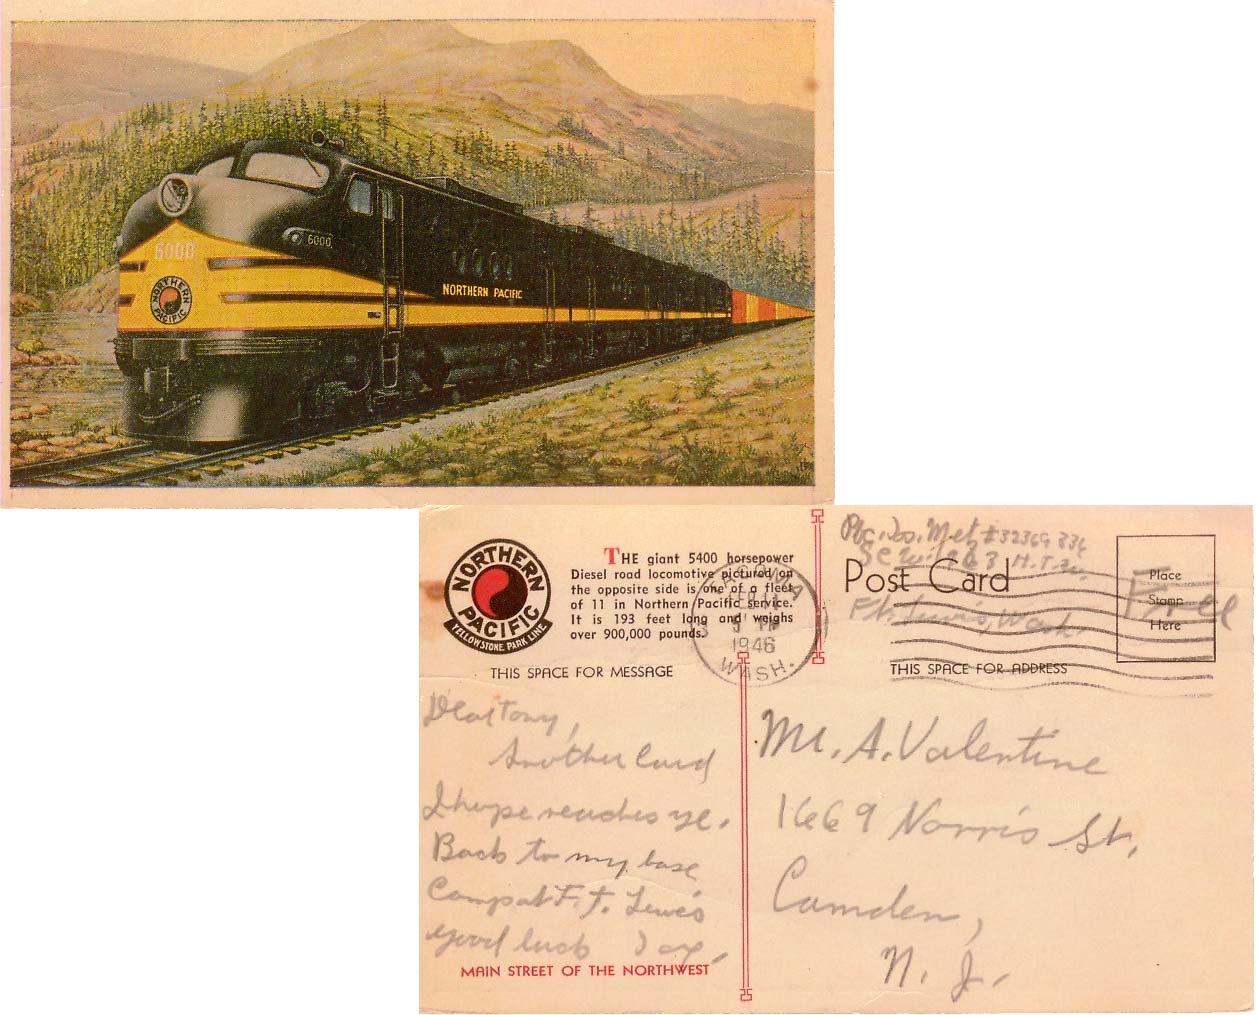 6000
6000
NORTHERN PACIFIC
NORTHERN
PACIFIC
NORTHERN
PACIFIC
YELLOWSTONE PARK LINE
THE giant 5400 horsepower
Diesel road locomotive pictured on
the opposite side is one of a fleet
of 11 in Northern Pacific service.
It is 193 feet long and weighs
over 900,000 pounds.
THIS SPACE FOR MESSAGE
Dear Tony,
Another Card
I hope reaches ye.
Back to my base
Camp at Ft. Lewis
Good luck
MAIN STREET OF THE NORTHWEST
TACOMA
FEB 11
PM
1946
WASH.
Pfc. Jos. Met #32369
H.T.
Post Card
Ft. Lewis, Wash.
Free
Place
Stamp
Here
THIS SPACE FOR ADDRESS
Mr. A. Valentine
1669 Norris St.
Camden,
N. J.